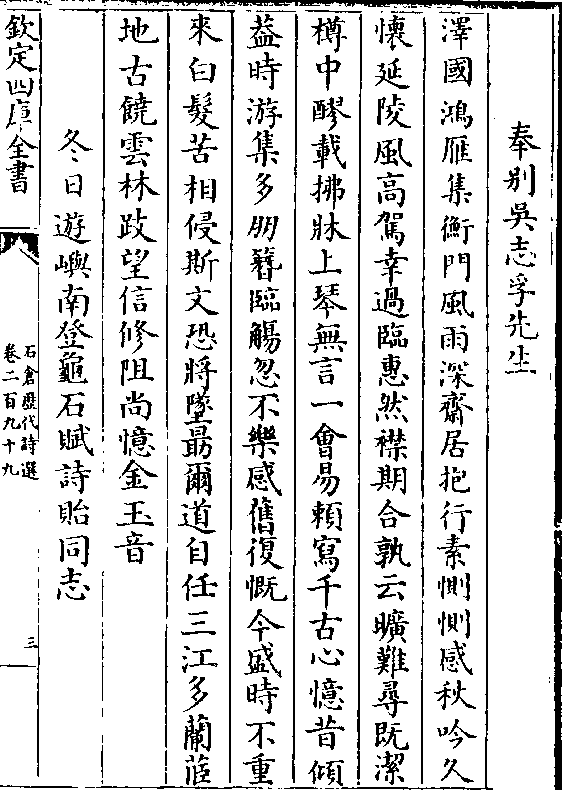 奉别吳志孚先生
澤國鴻雁集衡門風雨深齋居抱行素惻惻感秋吟久
懷延陵風高駕幸過臨惠然襟期合孰云曠難尋既潔
樽中醪載拂牀上琴無言一會易頼寫千古心憶昔傾
葢時游集多朋簪臨觴忽不樂感舊復慨今盛時不重
來白髮苦相侵斯文恐將墜朂爾道自任三江多蘭茝
地古饒雲林跂望信修阻尚憶金玉音
冬日遊嶼南登龜石賦詩貽同志
欽定四庫全書
石倉歴代詩選
卷二百九十九
三